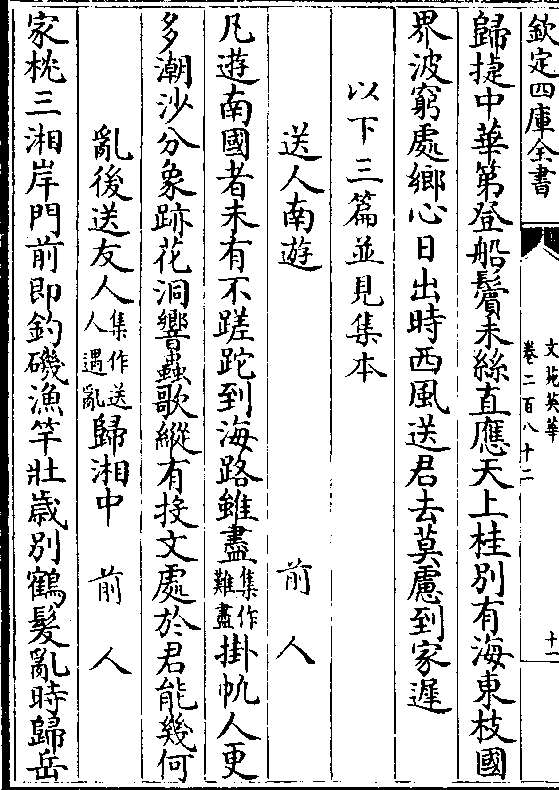 欽定四庫全書
文苑英華
卷二百八十二
十一
歸捷中華第登船鬢未絲直應天上桂別有海東枝國
界波窮處鄉心日出時西風送君去莫慮到家遲
以下三篇並見集本
送人南遊
前人
凡遊南國者未有不蹉跎到海路雖盡集作難盡掛帆人更
多潮沙分象跡花洞響蠻歌縱有投文處於君能幾何
亂後送友人集作送人遇亂歸湘中
前人
家枕三湘岸門前即釣磯漁竿壯歲別鶴髮亂時歸岳